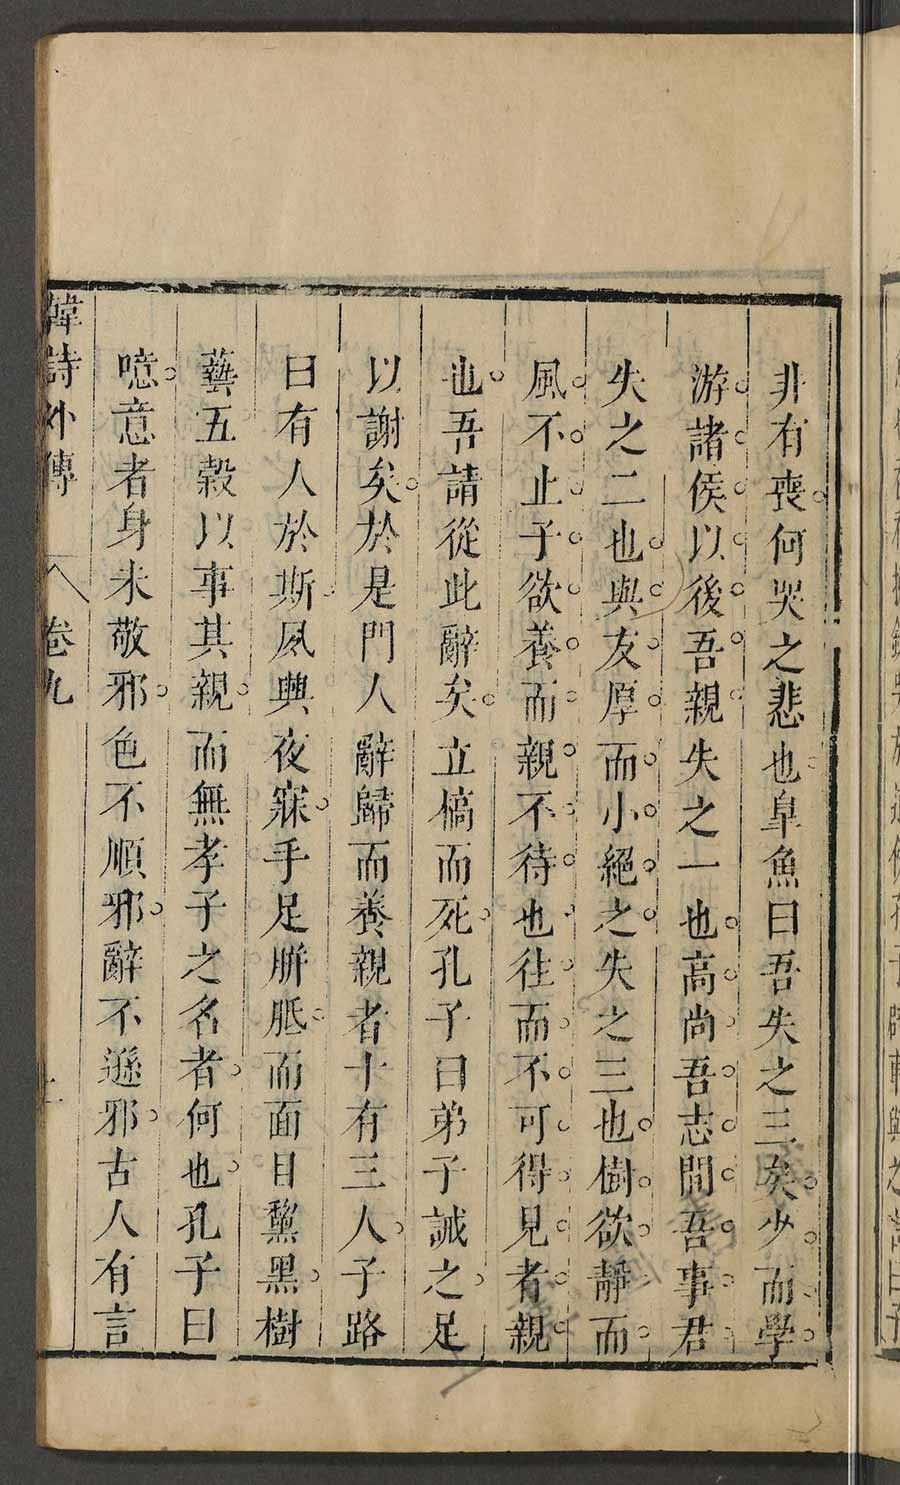 非有喪何哭之悲也臯魚曰吾失之三矣少而學
游諸侯以後吾親失之一也高尚吾志閒吾事君
失之二也與友厚而小絕之失之三也樹欲靜而
風不止子欲養而親不待也往而不可得見者親
也吾請從此辭矣立槁而死孔子曰弟子誡之足
以謝矣於是門人辭歸而養親者十有三人子路
曰有人於斯夙興夜寐手足胼胝而面目黧黑樹
藝五穀以事其親而無孝子之名者何也孔子曰
噫意者身未敬邪色不順邪辭不遜邪古人有言
韓詩外傳 卷九